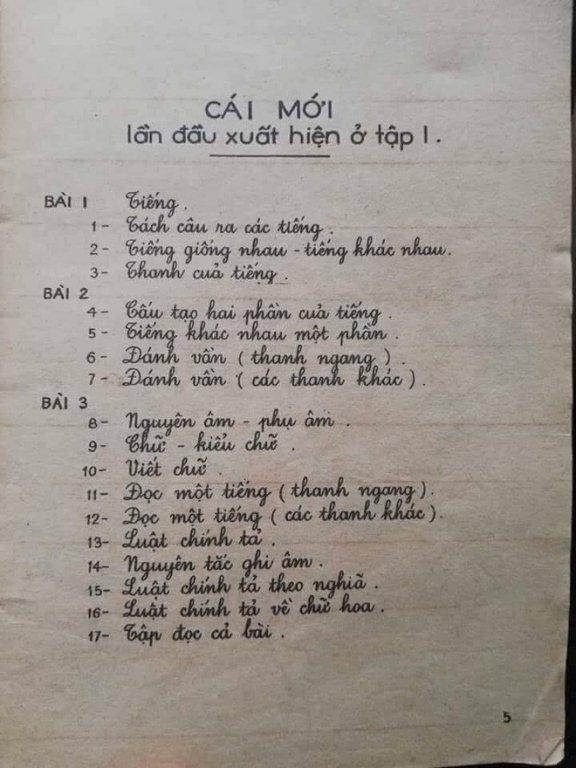 CÁI MỚI
lần đầu xuất hiện ở tập I.
BÀI I Tiếng.
1- Tách câu ra các tiếng.
2- Tiếng giống nhau - tiếng khác nhau.
3- Thanh của tiếng.
BÀI 2
4- Cấu tạo hai phần của tiếng.
5- Tiếng khác nhau một phần.
6- Đánh vần (thanh ngang).
7- Đánh vần (các thanh khác).
BÀI 3
8- Nguyên âm - phụ âm.
9- Chữ - kiểu chữ.
10- Viết chữ.
11- Đọc một tiếng (thanh ngang).
12- Đọc một tiếng (các thanh khác).
13- Luật chính tả.
14- Nguyên tắc ghi âm.
15- Luật chính tả theo nghĩa.
16- Luật chính tả về chữ hoa.
17- Tập đọc cả bài.
5